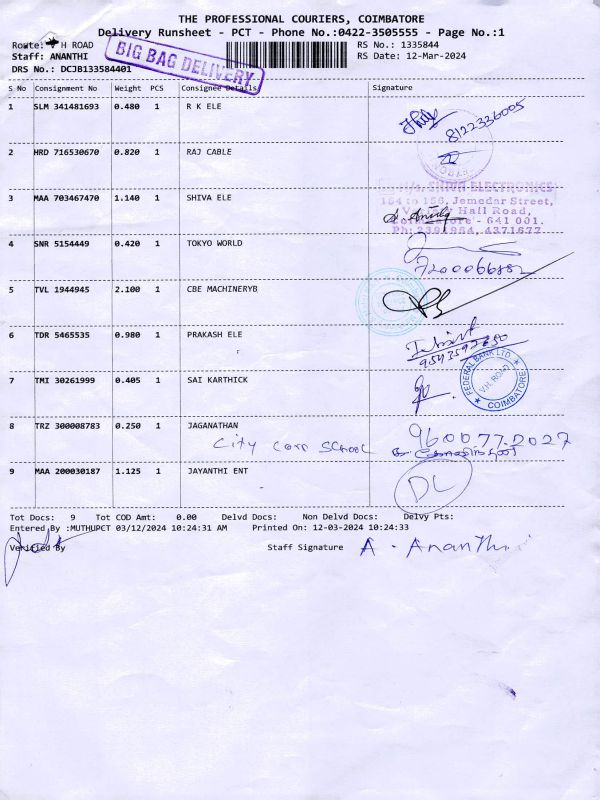 THE PROFESSIONAL COURIERS, COIMBATORE
Delivery Runsheet - PCT - Phone No.:0422-3505555 - Page No.:1
Route: H ROAD
RS No.: 1335844
Staff: ANANTHI
BIG BAG DELIVERY
RS Date: 12-Mar-2024
DRS No.: DCJB133584401
S No Consignment No Weight PCS Consignee Details Signature
1 SLM 341481693 0.480 1 R K ELE
8122336005
2 HRD 716530670 0.820 1 RAJ CABLE
3 MAA 703467470 1.140 1 SHIVA ELE
SHIVA ELECTRONICS
184 to 156, Jemedar Street,
Hall Road,
Coimbatore - 641 001.
Ph: 2391964, 4371677
4 SNR 5154449 0.420 1 TOKYO WORLD
7200066882
5 TVL 1944945 2.100 1 CBE MACHINERYB
6 TDR 5465535 0.980 1 PRAKASH ELE
9543592650
7 TMI 30261999 0.405 1 SAI KARTHICK
FEDERAL BANK LTD.
V.H. ROAD
COIMBATORE
8 TRZ 300008783 0.250 1 JAGANATHAN
City Corp School
960077 2027
9 MAA 200030187 1.125 1 JAYANTHI ENT
DL
Tot Docs: 9 Tot COD Amt: 0.00 Delvd Docs: Non Delvd Docs: Delvy Pts:
Entered By :MUTHUPCT 03/12/2024 10:24:31 AM Printed On: 12-03-2024 10:24:33
Verified By Staff Signature A. Ananthi